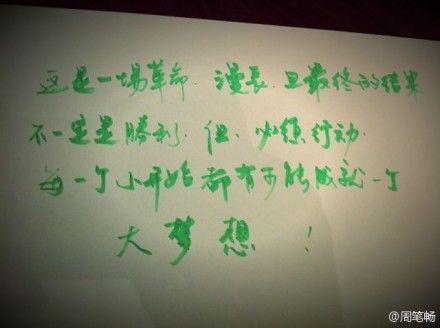 这是一場革命.漫長.且最终的结果
不一定是勝利.但、必须行动.
每一个小开始都有可能成就一个
大梦想!
@周笔畅